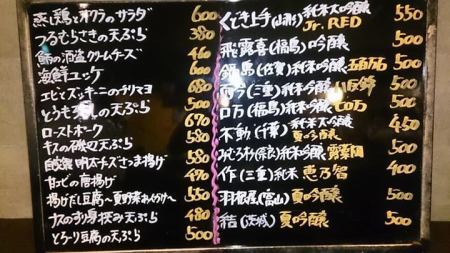 蒸し鶏とオクラのサラダ 600
つるむらさきの天ぷら 380
鰤の酒盗クリームチーズ 460
海鮮ユッケ 600
エビとズッキーニのチリマヨ 680
とうもろこしの天ぷら 500
ローストポーク 670
キスの磯辺天ぷら 580
自家製 明太チーズさつま揚げ 580
甘エビの唐揚げ 490
揚げだし豆腐 〜夏野菜あんかけ〜 550
ナスのすり身挟み天ぷら 480
とろーり豆腐の天ぷら 500
くどき上手(山形)純米大吟醸 Jr. RED 550
飛露喜(福島)吟醸 500
鍋島(佐賀)純米吟醸 五百万石 500
而今(三重)純米吟醸 500
ロ万(福島)純米吟醸 500
不動(千葉)純米大吟醸 夏吟醸 450
みむろ杉(奈良)純米吟醸 露葉風 500
作(三重)純米 恵乃智 400
羽根屋(富山)夏吟醸 500
結(茨城)夏吟醸 500